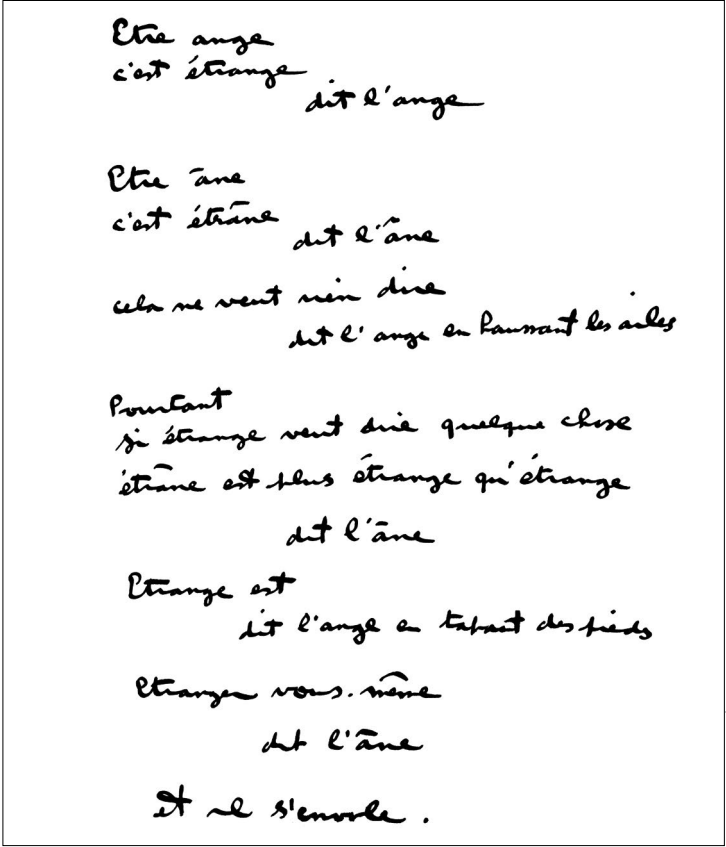 Etre ange
c'est étrange
dit l'ange
Etre âne
c'est étrâne
dit l'âne
cela ne veut rien dire
dit l'ange en haussant les ailes
Pourtant
si étrange veut dire quelque chose
étrâne est plus étrange qu'étrange
dit l'âne
Etrange est
dit l'ange en tapant des pieds
Etranger vous-même
dit l'âne
Et il s'envole.